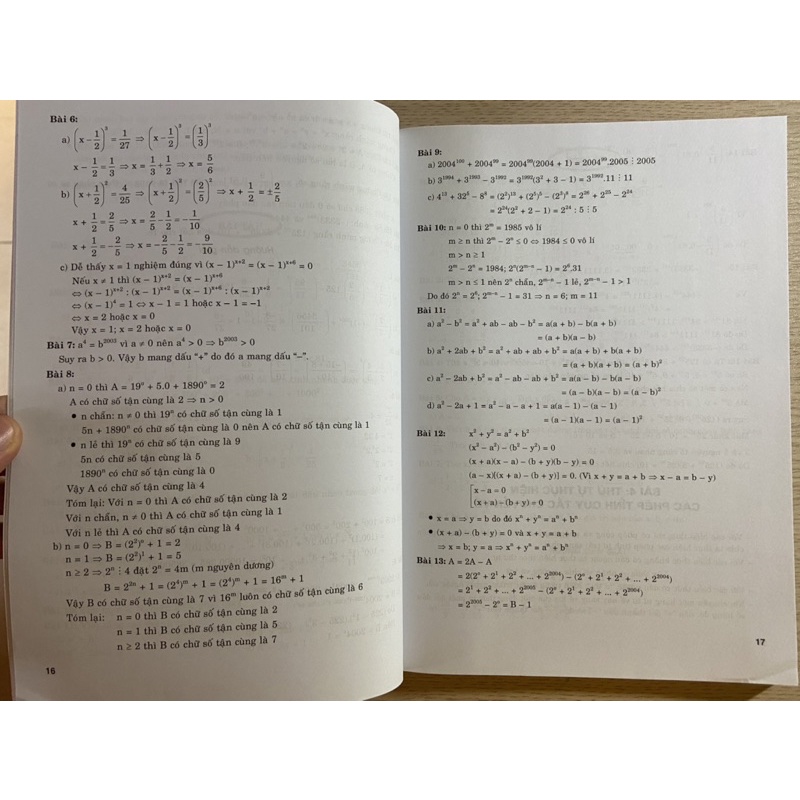 Bài 6:
a) (x − 1/2)³ = 1/27 ⇒ (x − 1/2)³ = (1/3)³
x − 1/2 = 1/3 ⇒ x = 1/3 + 1/2 ⇒ x = 5/6
b) (x + 1/2)² = 4/25 ⇒ (x + 1/2)² = (2/5)² ⇒ x + 1/2 = ± 2/5
x + 1/2 = 2/5 ⇒ x = 2/5 − 1/2 = − 1/10
x + 1/2 = − 2/5 ⇒ x = − 2/5 − 1/2 = − 9/10
c) Dễ thấy x = 1 nghiệm đúng vì (x − 1)ˣ⁺² = (x − 1)ˣ⁺⁶ = 0
Nếu x ≠ 1 thì (x − 1)ˣ⁺² = (x − 1)ˣ⁺⁶
⇔ (x − 1)ˣ⁺² : (x − 1)ˣ⁺² = (x − 1)ˣ⁺⁶ : (x − 1)ˣ⁺²
⇔ (x − 1)⁴ = 1 ⇔ x − 1 = 1 hoặc x − 1 = −1
⇔ x = 2 hoặc x = 0
Vậy x = 1; x = 2 hoặc x = 0
Bài 7: a⁴ = b²⁰⁰³ vì a ≠ 0 nên a⁴ > 0 ⇒ b²⁰⁰³ > 0
Suy ra b > 0. Vậy b mang dấu "+" do đó a mang dấu "−".
Bài 8:
a) n = 0 thì A = 19ⁿ + 5.0 + 1890ⁿ = 2
A có chữ số tận cùng là 2 ⇒ n > 0
• n chẵn: n ≠ 0 thì 19ⁿ có chữ số tận cùng là 1
5n + 1890ⁿ có chữ số tận cùng là 0 nên A có chữ số tận cùng là 1
• n lẻ thì 19ⁿ có chữ số tận cùng là 9
5n có chữ số tận cùng là 5
1890ⁿ có chữ số tận cùng là 0
Vậy A có chữ số tận cùng là 4
Tóm lại: Với n = 0 thì A có chữ số tận cùng là 2
Với n chẵn, n ≠ 0 thì A có chữ số tận cùng là 1
Với n lẻ thì A có chữ số tận cùng là 4
b) n = 0 ⇒ B = (2²)ⁿ + 1 = 2
n = 1 ⇒ B = (2²)¹ + 1 = 5
n ≥ 2 ⇒ 2ⁿ ⋮ 4 đặt 2ⁿ = 4m (m nguyên dương)
B = 2²ⁿ + 1 = (2⁴)ᵐ + 1 = (2⁴)ᵐ + 1 = 16ᵐ + 1
Vậy B có chữ số tận cùng là 7 vì 16ᵐ luôn có chữ số tận cùng là 6
Tóm lại: n = 0 thì B có chữ số tận cùng là 2
n = 1 thì B có chữ số tận cùng là 5
n ≥ 2 thì B có chữ số tận cùng là 7
16
Bài 9:
a) 2004¹⁰⁰ + 2004⁹⁹ = 2004⁹⁹(2004 + 1) = 2004⁹⁹.2005 ⋮ 2005
b) 3¹⁹⁹⁴ + 3¹⁹⁹³ − 3¹⁹⁹² = 3¹⁹⁹²(3² + 3 − 1) = 3¹⁹⁹².11 ⋮ 11
c) 4¹³ + 32⁵ − 8⁸ = (2²)¹³ + (2⁵)⁵ − (2³)⁸ = 2²⁶ + 2²⁵ − 2²⁴
= 2²⁴(2² + 2 − 1) = 2²⁴ : 5 ⋮ 5
Bài 10: n = 0 thì 2ᵐ = 1985 vô lí
m ≥ n thì 2ᵐ − 2ⁿ ≤ 0 ⇔ 1984 ≤ 0 vô lí
m > n ≥ 1
2ᵐ − 2ⁿ = 1984; 2ⁿ(2ᵐ⁻ⁿ − 1) = 2⁶.31
m > n ≤ 1 nên 2ⁿ chẵn, 2ᵐ⁻ⁿ − 1 lẻ, 2ᵐ⁻ⁿ − 1 > 1
Do đó 2ⁿ = 2⁶; 2ᵐ⁻ⁿ − 1 = 31 ⇒ n = 6; m = 11
Bài 11:
a) a² − b² = a² + ab − ab − b² = a(a + b) − b(a + b)
= (a + b)(a − b)
b) a² + 2ab + b² = a² + ab + ab + b² = a(a + b) + b(a + b)
= (a + b)(a + b) = (a + b)²
c) a² − 2ab + b² = a² − ab − ab + b² = a(a − b) − b(a − b)
= (a − b)(a − b) = (a − b)²
d) a² − 2a + 1 = a² − a − a + 1 = a(a − 1) − (a − 1)
= (a − 1)(a − 1) = (a − 1)²
Bài 12: x² + y² = a² + b²
(x² − a²) − (b² − y²) = 0
(x + a)(x − a) − (b + y)(b − y) = 0
(a − x)[(x + a) − (b + y)] = 0. (Vì x + y = a + b ⇒ x − a = b − y)
[x − a = 0
(x + a) − (b + y) = 0
• x = a ⇒ y = b do đó xⁿ + yⁿ = aⁿ + bⁿ
• (x + a) − (b + y) = 0 và x + y = a + b
⇒ x = b; y = a ⇒ xⁿ + yⁿ = aⁿ + bⁿ
Bài 13: A = 2A − A
= 2(2ⁿ + 2¹ + 2² + ... + 2²⁰⁰⁴) − (2ⁿ + 2¹ + 2² + ... + 2²⁰⁰⁴)
= 2¹ + 2² + ... + 2²⁰⁰⁵ − (2ⁿ + 2¹ + 2² + ... + 2²⁰⁰⁴)
= 2²⁰⁰⁵ − 2ⁿ = B − 1
17